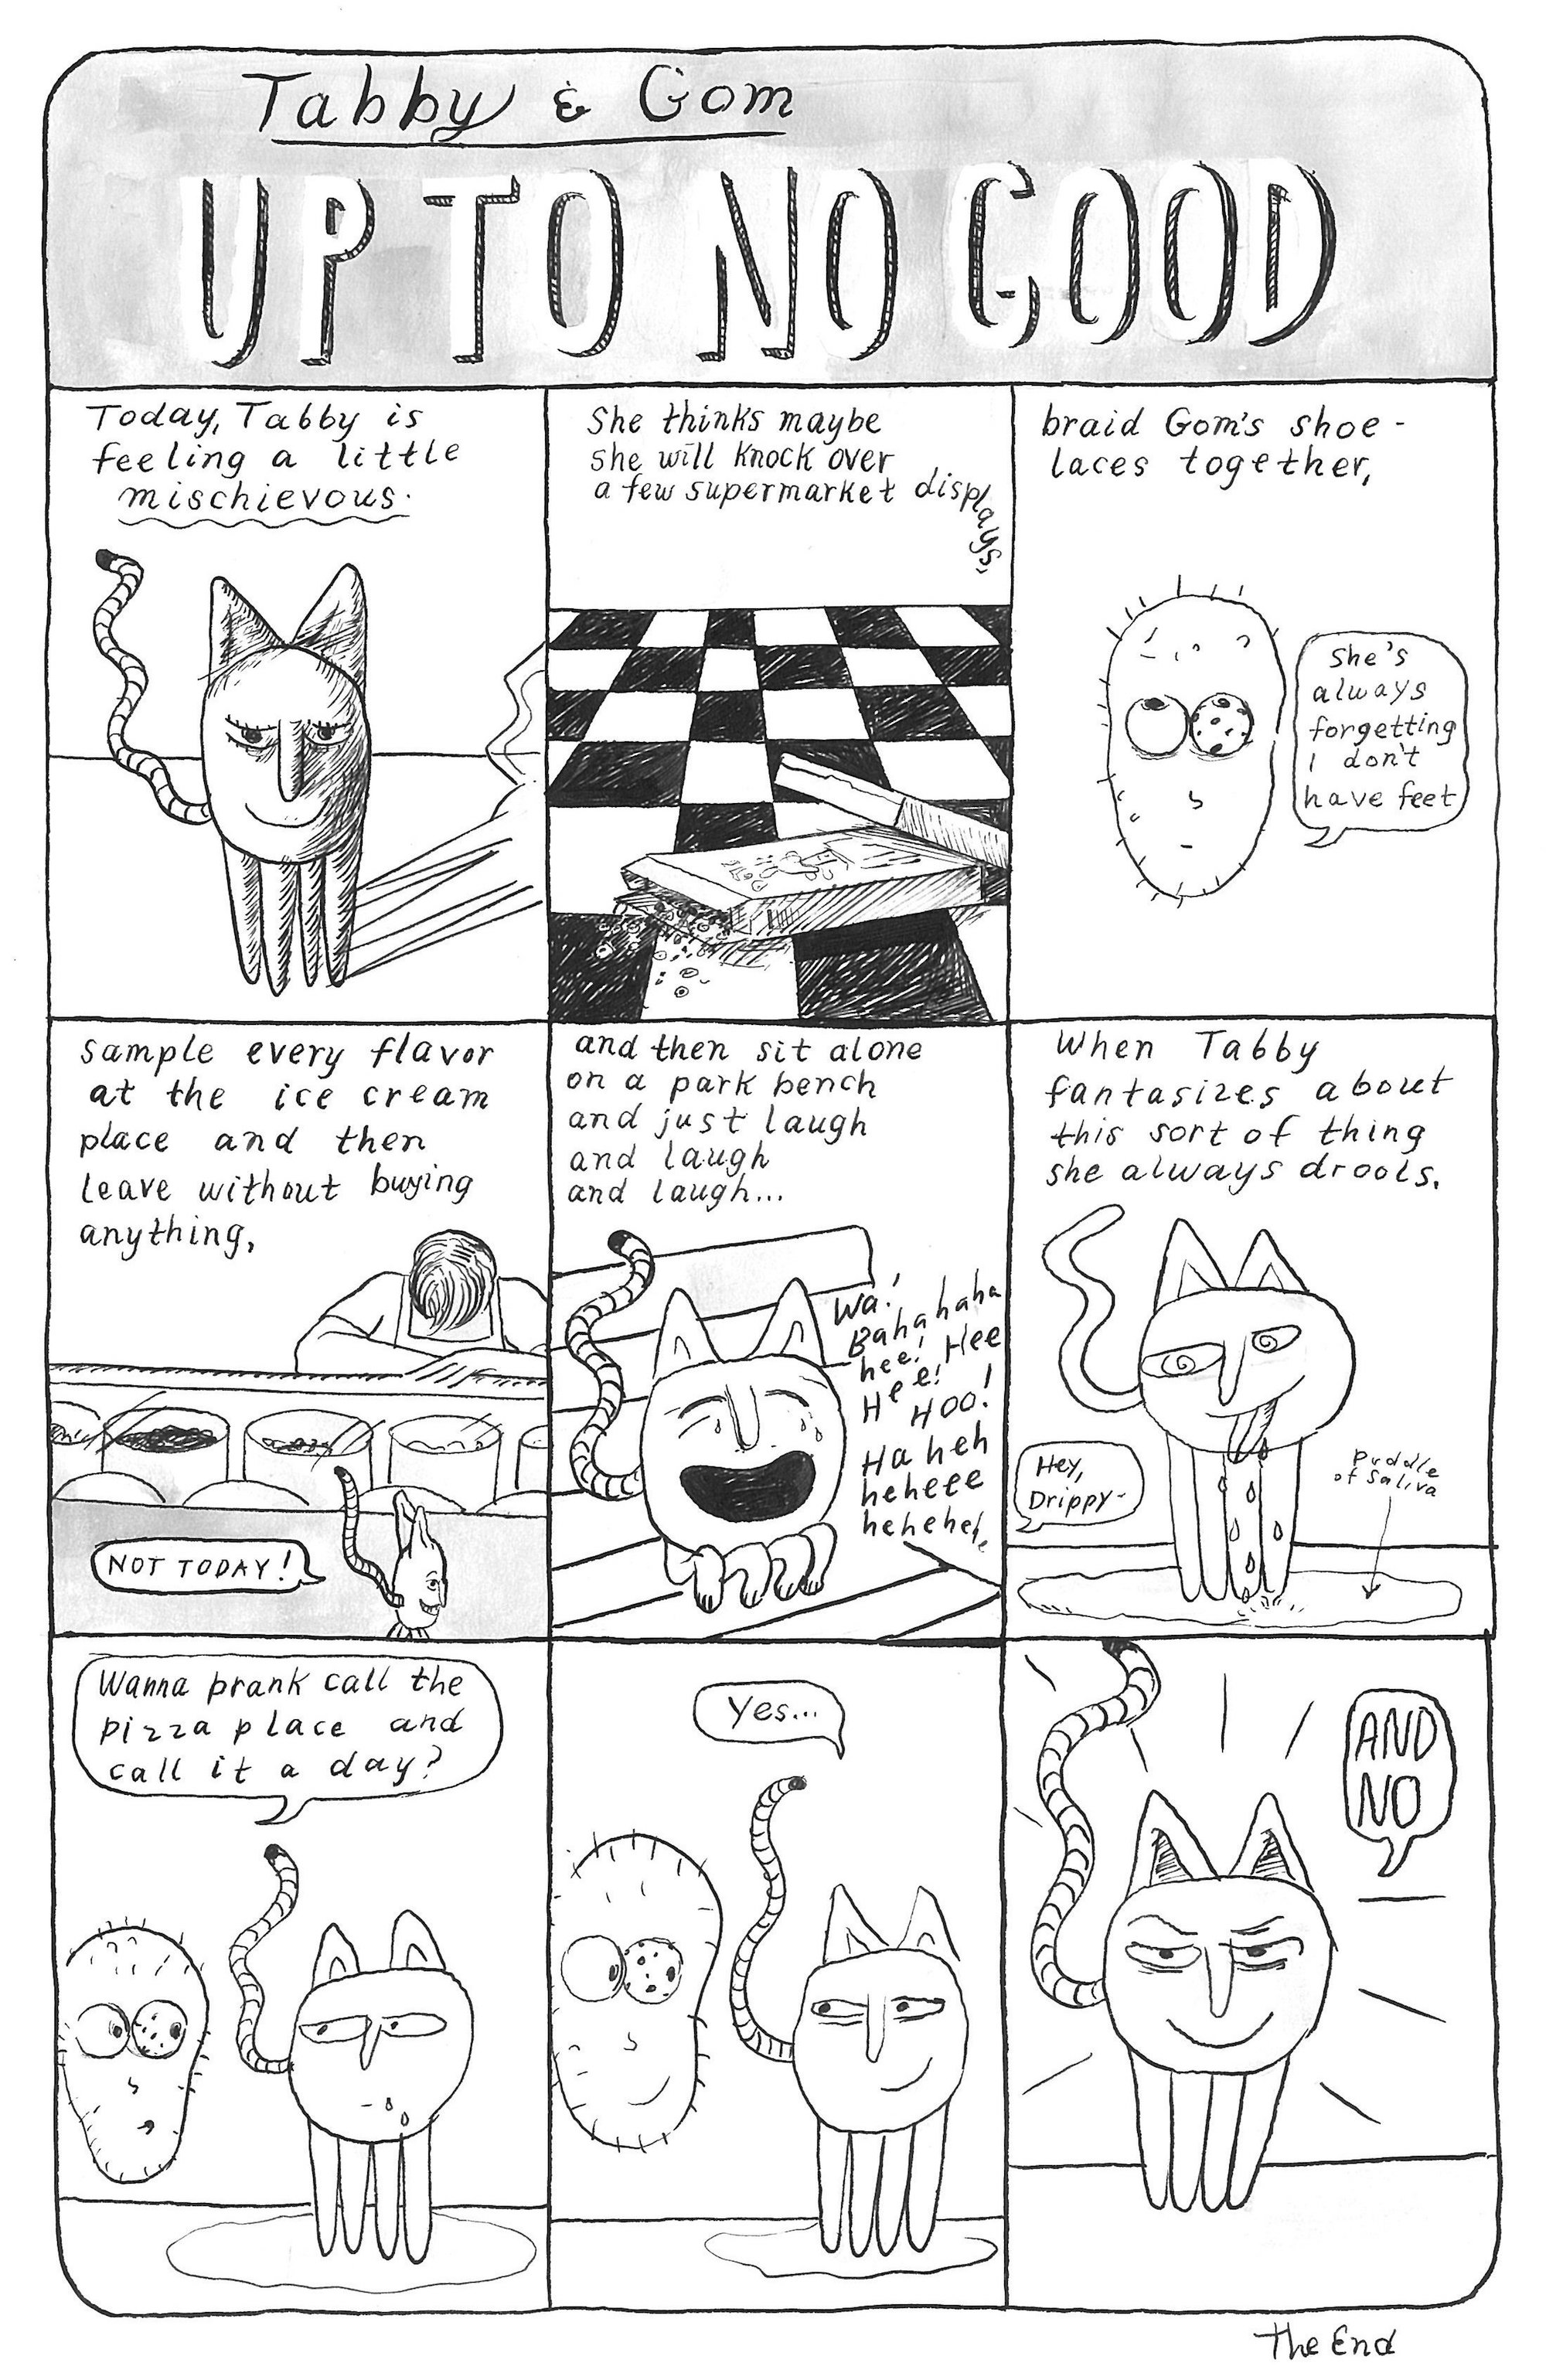 Tabby & Gom
UP TO NO GOOD
Today, Tabby is
feeling a little
mischievous.
She thinks maybe
she will knock over
a few supermarket displays,
braid Gom's shoe-
laces together,
She's
always
forgetting
I don't
have feet
sample every flavor
at the ice cream
place and then
leave without buying
anything,
NOT TODAY!
and then sit alone
on a park bench
and just laugh
and laugh
and laugh...
Wa!
Bahahahaha
hee! Hee
Hee!
HOO!
Ha heh
heheee
heheheh
When Tabby
fantasizes about
this sort of thing
she always drools.
Hey,
Drippy-
puddle
of saliva
Wanna prank call the
pizza place and
call it a day?
Yes...
AND
NO
The End